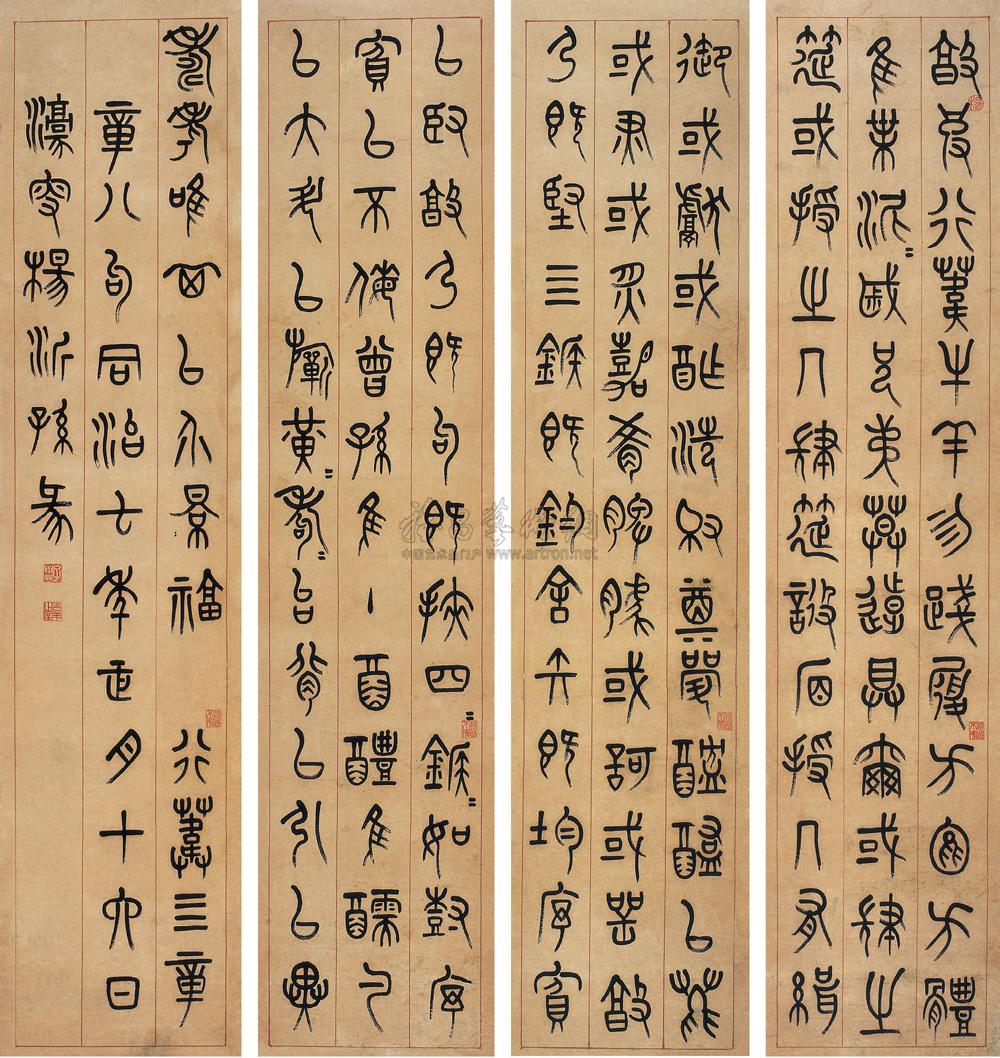 敦彼行葦牛羊勿踐履方苞方體
隹葉泥〻戚兄弟莫遠具爾或肆之
筵或授之几肆筵設席授几有緝
御或獻或酢洗爵奠斝醓醢以薦
或燔或炙嘉肴脾臄或歌或咢敦
弓既堅亖鍭既鈞舍矢既均序賓
以臤敦弓既句既挾四〻鍭〻如樹序
賓以不侮曾孫隹主酉醴隹醹勺
以大斗以祈黃〻耇〻台背以引以翼
壽考唯祺以介景福 行葦亖章
章八句同治七年正月十六日
濠叟楊沂孫篆